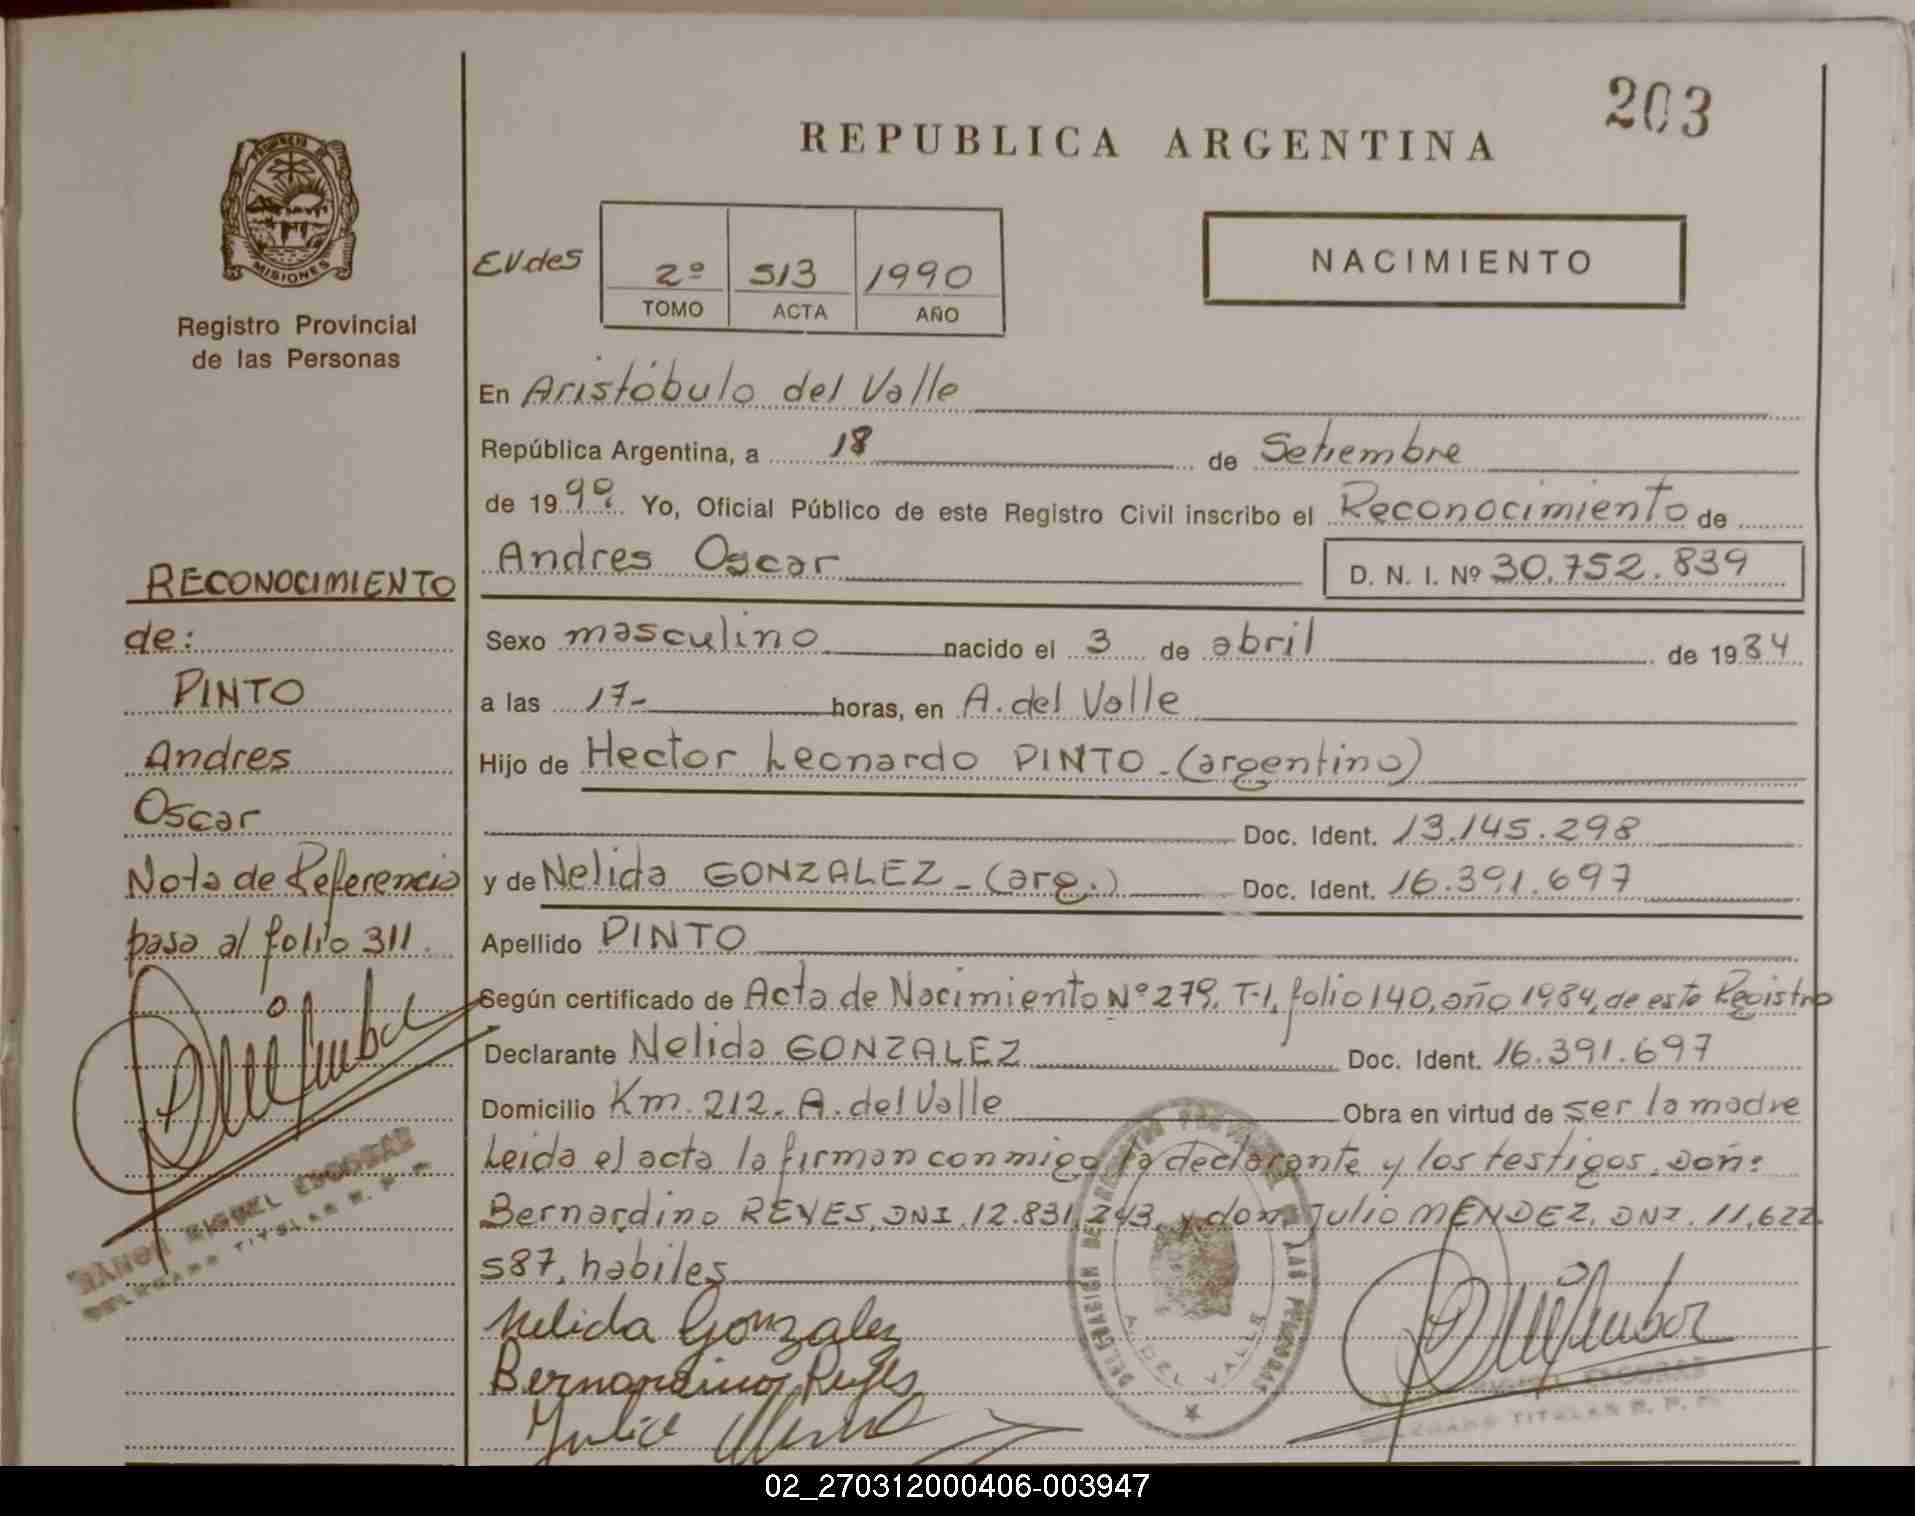 203
REPUBLICA ARGENTINA
PROVINCIA DE
MISIONES
Registro Provincial
de las Personas
2º 513 1990
TOMO ACTA AÑO
NACIMIENTO
En Aristóbulo del Valle
República Argentina, a 18 de Setiembre
de 1990 Yo, Oficial Público de este Registro Civil inscribo el Reconocimiento de
Andres Oscar D. N. I. Nº 30.752.839
Sexo masculino nacido el 3 de abril de 1984
a las 17- horas, en A. del Valle
Hijo de Hector Leonardo PINTO - (argentino)
Doc. Ident. 13.145.298
y de Nelida GONZALEZ - (arg.) Doc. Ident. 16.391.697
Apellido PINTO
Según certificado de Acta de Nacimiento Nº 279, T-1, folio 140, año 1984, de este Registro
Declarante Nelida GONZALEZ Doc. Ident. 16.391.697
Domicilio Km. 212- A. del Valle Obra en virtud de ser la madre
Leida el acta la firman conmigo la declarante y los testigos, Don:
Bernardino REYES, DNI. 12.831.243, y don Julio MENDEZ, DNI. 11.622.
587, habiles
Nelida Gonzalez
Bernardino Reyes
Julio
RECONOCIMIENTO
de:
PINTO
Andres
Oscar
Nota de Referencia
pasa al folio 311.
RAMON MIGUEL ESCOBAR
DELEGADO TITULAR R. P. P.
DELEGACION DEL REGISTRO PROVINCIAL DE LAS PERSONAS
A. DEL VALLE
MIGUEL ESCOBAR
DELEGADO TITULAR R. P. P.
02_270312000406-003947